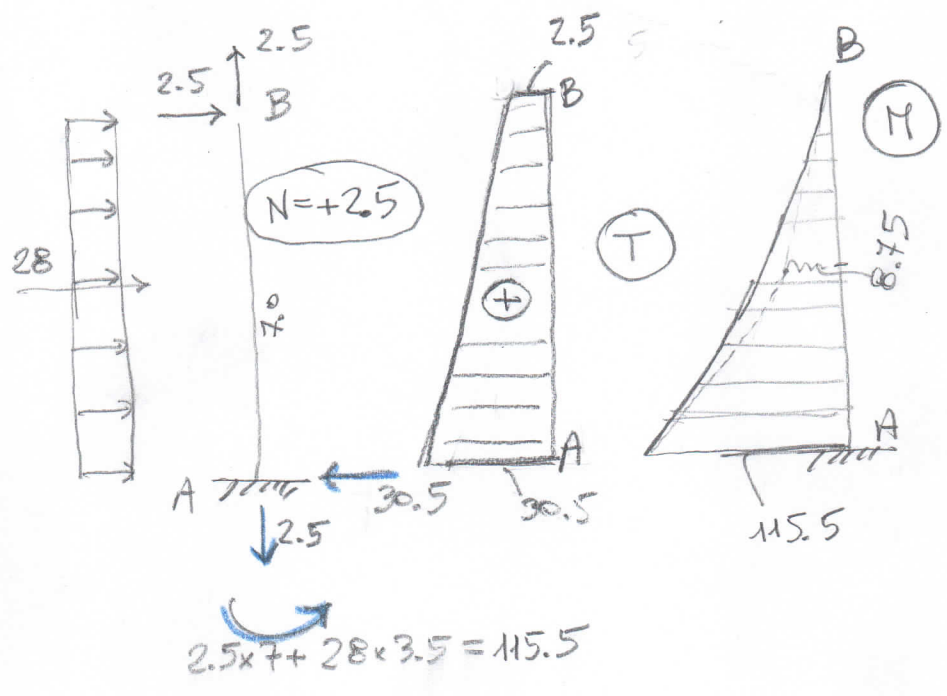 2.5
2.5
B
N=+2.5
28
7.0
A
2.5
30.5
2.5×7+28×3.5=115.5
2.5
B
T
+
A
30.5
B
M
8.75
A
115.5